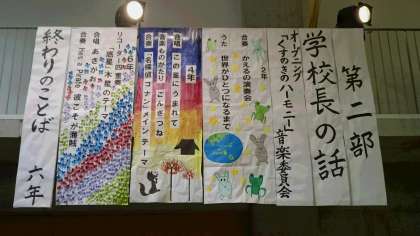 第二部
学校長の話
オープニング
「くすのきのハーモニー」音楽委員会
2年
合奏 かえるの演奏会
うた 世界がひとつになるまで
4年
合唱 この星にうまれて
音楽ものがたり ごんぎつね
合奏 「名探偵コナン」メインテーマ
6年
リコーダー四重奏
「惑星」木星のテーマ
合唱 あさがお
合奏 He's a Pirate 彼こそ海賊
終わりのことば 六年